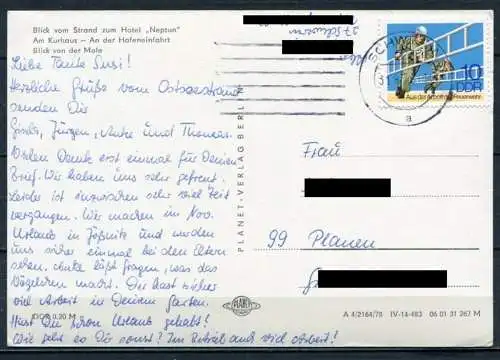 Blick vom Strand zum Hotel „Neptun"
Am Kurhaus – An der Hafeneinfahrt
Blick von der Mole
Liebe Tante Susi!
Herzliche Grüße vom Ostseestrand
senden Dir
Gisela, Jürgen, Antje und Thomas.
Vielen Dank erst einmal für Deinen
Brief. Wir haben uns sehr gefreut.
Leider ist inzwischen sehr viel Zeit
vergangen. Wir machen im Nov.
Urlaub in Jößnitz und werden
uns sicher einmal bei den Eltern
sehen. Antje läßt fragen, was das
Vögelchen macht. Du hast sicher
viel Arbeit in Deinem Garten.
Hast Du schon Urlaub gehabt?
Wie geht es Dir sonst? Im Betrieb auch viel Arbeit?
DDR 0,20 M
PLANET-VERLAG BERLIN
PLANET
27 Schwerin
SCHWERIN
a
10
DDR
Aus der Arbeit der Feuerwehr
Frau
99 Plauen
A 4/2164/78 IV-14-483 06 01 31 267 M